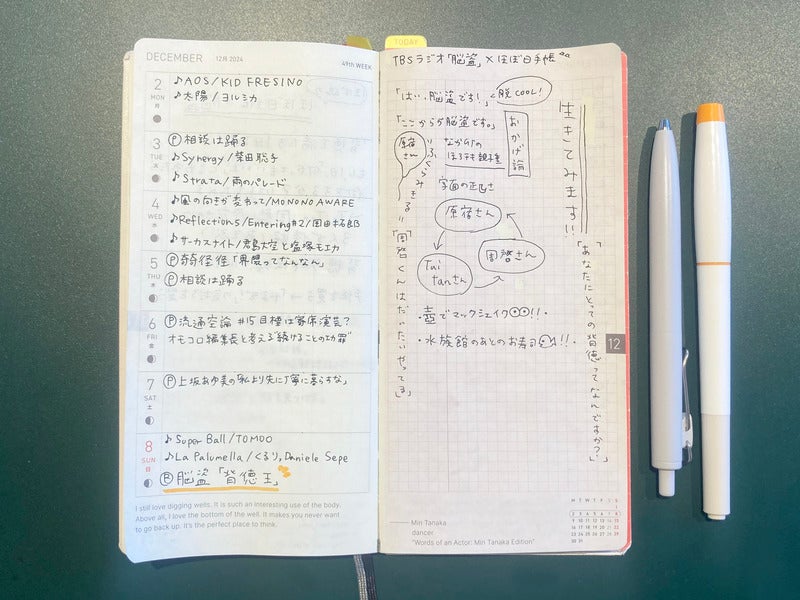 DECEMBER 12月 2024 49th WEEK
2 MON 月
♪AOS/KID FRESINO
♪太陽/ヨルシカ
3 TUE 火
Ⓟ相談は踊る
♪Synergy/柴田聡子
♪Strata/雨のパレード
4 WED 水
♪風の向きが変わって/MONONO AWARE
♪Reflections/Entering#2/岡田拓郎
♪サーカスナイト/君島大空と塩塚モエカ
5 THU 木
Ⓟ奇奇怪怪「界隈ってなんなん」
Ⓟ相談は踊る
6 FRI 金
Ⓟ流通空論 #15目標は寄席演芸?
オモコロ編集長と考える"続けることの功罪"
7 SAT 土
Ⓟ上坂あゆ美の「私より先に丁寧に暮らすな」
8 SUN 日
♪Super Ball/TOMOO
♪La Palumella/くるり,Daniele Sepe
Ⓡ脳盗「背徳王」
I still love digging wells. It is such an interesting use of the body.
Above all, I love the bottom of the well. It makes you never want
to go back up. It's the perfect place to think.
TODAY
TBSラジオ「脳盗」×ほぼ日手帳
「はい、脳盗です!」<脱COOL!
「ここからが脳盗です。」
おかげ論
生きてみます!!
原宿さん
なかみの
ほろ手き親種
字面の正しさ
原宿さん
周啓さん
Tai
tanさん
「周啓くんはだいたいやってる」
「あなたにとっての背徳ってなんですか?」
・壺でマックシェイク!!・
・水族館のあとのお寿司!!・
12
Min Tanaka
dancer
"Words of an Actor: Min Tanaka Edition"
M T W T F S S
1
2 3 4 5 6 7 8
9 10 11 12 13 14 15
16 17 18 19 20 21 22
23 24 25 26 27 28 29
30 31